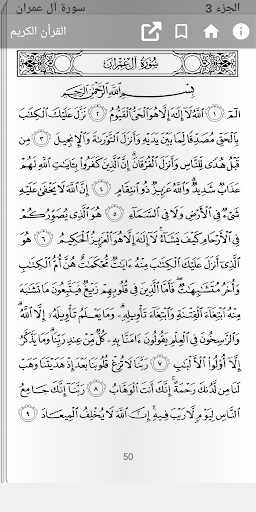 سورة آل عمران
الجزء 3
القرآن الكريم
سُورَةُ آلِ عِمْرَانَ
بِسْمِ اللَّهِ الرَّحْمَٰنِ الرَّحِيمِ
الٓمٓ ١ ٱللَّهُ لَآ إِلَٰهَ إِلَّا هُوَ ٱلْحَىُّ ٱلْقَيُّومُ ٢ نَزَّلَ عَلَيْكَ ٱلْكِتَٰبَ
بِٱلْحَقِّ مُصَدِّقًا لِّمَا بَيْنَ يَدَيْهِ وَأَنزَلَ ٱلتَّوْرَىٰةَ وَٱلْإِنجِيلَ ٣ مِن
قَبْلُ هُدًى لِّلنَّاسِ وَأَنزَلَ ٱلْفُرْقَانَ إِنَّ ٱلَّذِينَ كَفَرُوا۟ بِـَٔايَٰتِ ٱللَّهِ لَهُمْ
عَذَابٌ شَدِيدٌ وَٱللَّهُ عَزِيزٌ ذُو ٱنتِقَامٍ ٤ إِنَّ ٱللَّهَ لَا يَخْفَىٰ عَلَيْهِ
شَىْءٌ فِى ٱلْأَرْضِ وَلَا فِى ٱلسَّمَآءِ ٥ هُوَ ٱلَّذِى يُصَوِّرُكُمْ
فِى ٱلْأَرْحَامِ كَيْفَ يَشَآءُ لَآ إِلَٰهَ إِلَّا هُوَ ٱلْعَزِيزُ ٱلْحَكِيمُ ٦ هُوَ
ٱلَّذِىٓ أَنزَلَ عَلَيْكَ ٱلْكِتَٰبَ مِنْهُ ءَايَٰتٌ مُّحْكَمَٰتٌ هُنَّ أُمُّ ٱلْكِتَٰبِ
وَأُخَرُ مُتَشَٰبِهَٰتٌ فَأَمَّا ٱلَّذِينَ فِى قُلُوبِهِمْ زَيْغٌ فَيَتَّبِعُونَ مَا تَشَٰبَهَ
مِنْهُ ٱبْتِغَآءَ ٱلْفِتْنَةِ وَٱبْتِغَآءَ تَأْوِيلِهِۦ وَمَا يَعْلَمُ تَأْوِيلَهُۥٓ إِلَّا ٱللَّهُ
وَٱلرَّٰسِخُونَ فِى ٱلْعِلْمِ يَقُولُونَ ءَامَنَّا بِهِۦ كُلٌّ مِّنْ عِندِ رَبِّنَا وَمَا يَذَّكَّرُ
إِلَّآ أُو۟لُوا۟ ٱلْأَلْبَٰبِ ٧ رَبَّنَا لَا تُزِغْ قُلُوبَنَا بَعْدَ إِذْ هَدَيْتَنَا وَهَبْ
لَنَا مِن لَّدُنكَ رَحْمَةً إِنَّكَ أَنتَ ٱلْوَهَّابُ ٨ رَبَّنَآ إِنَّكَ جَامِعُ
ٱلنَّاسِ لِيَوْمٍ لَّا رَيْبَ فِيهِ إِنَّ ٱللَّهَ لَا يُخْلِفُ ٱلْمِيعَادَ ٩
50